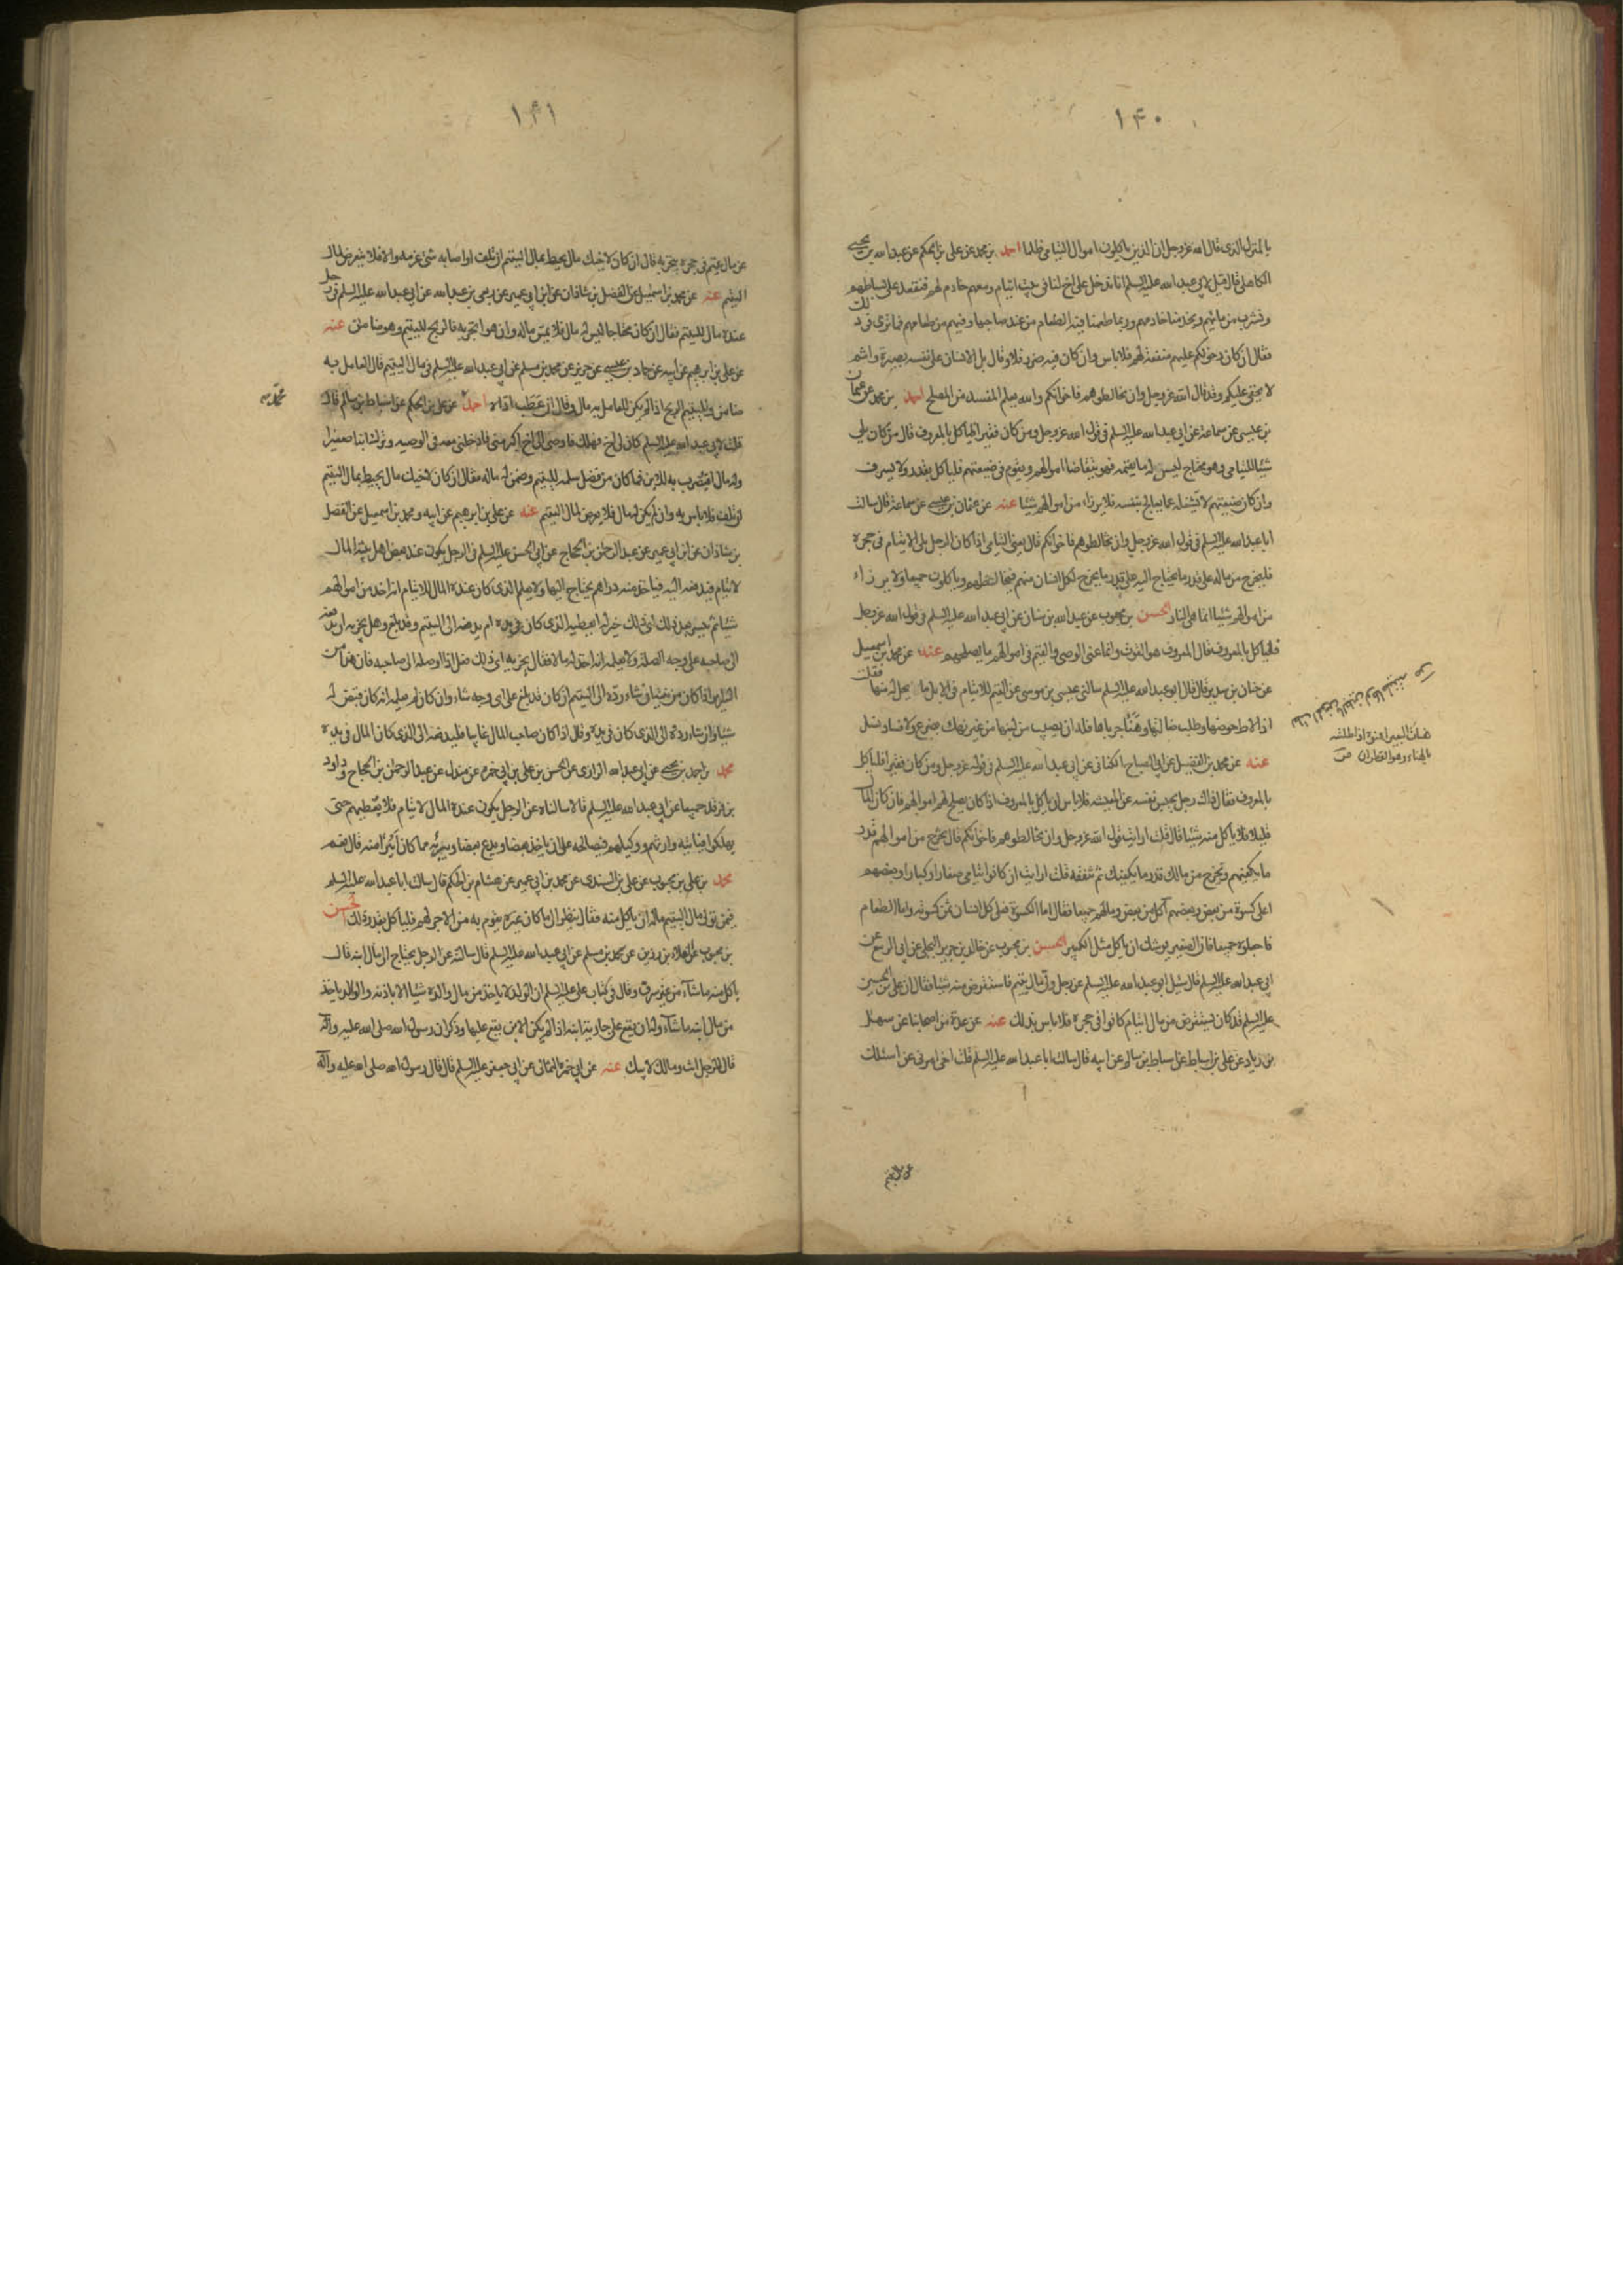 ١٤٠
بالمنزل الذى قال الله عز وجل ان الذين ياكلون اموال اليتامى ظلما احمد بن محمد عن على بن الحكم عن عبد الله بن يحيى
الكاهلى قال قيل لابى عبد الله عليه السلم انا ندخل على اخ لنا فى بيت ايتام ومعهم خادم لهم فنقعد على بساطهم
ونشرب من مائهم ويخدمنا خادمهم وربما طعمنا فيه الطعام من عند صاحبنا وفيهم من طعامهم فما ترى فى ذلك
فقال ان كان دخولكم عليهم منفعة لهم فلا باس وان كان فيه ضرر فلا وقال بل الانسان على نفسه بصيرة وانتم
لا يخفى عليكم وقد قال الله عز وجل وان تخالطوهم فاخوانكم والله يعلم المفسد من المصلح احمد بن محمد عن عثمان
بن عيسى عن سماعة عن ابى عبد الله عليه السلم فى قول الله عز وجل ومن كان فقيرا فلياكل بالمعروف قال من كان يلى
شيئا لليتامى وهو محتاج ليس له ما يقيمه فهو يتقاضا اموالهم ويقوم فى ضيعتهم فلياكل بقدر ولا يسرف
وان كان ضيعتهم لا تشغله عما يعالج بنفسه فلا يرزاء من اموالهم شيئا عنه عن عثمان بن عيسى عن سماعة قال سالت
ابا عبد الله عليه السلم فى قول الله عز وجل وان تخالطوهم فاخوانكم قال يعنى اليتامى اذا كان الرجل يلى الايتام فى حجره
فليخرج من ماله على قدر ما يحتاج اليه على قدر ما يخرج لكل انسان منهم فيخالطهم وياكلون جميعا ولا يرزاء
من اموالهم شيئا انما هى النار الحسن بن محبوب عن عبد الله بن سنان عن ابى عبد الله عليه السلم فى قول الله عز وجل
فلياكل بالمعروف قال المعروف هو القوت وانما عنى الوصى والقيم فى اموالهم ما يصلحهم عنه عن محمد بن اسمعيل
عن حنان بن سدير قال قال ابو عبد الله عليه السلم سالنى عيسى بن موسى عن القيم للايتام فى الابل ما يحل له منها فقلت
اذا لاط حوضها وطلب ضالتها وهنأ جرباها فله ان يصيب من لبنها من غير نهك بضرع ولا فساد نسل
عنه عن محمد بن الفضيل عن ابى الصباح الكنانى عن ابى عبد الله عليه السلم فى قوله عز وجل ومن كان فقيرا فلياكل
بالمعروف فقال ذاك رجل يحبس نفسه عن المعيشه فلا باس ان ياكل بالمعروف اذا كان يصلح لهم اموالهم فان كان المال
قليلا فلا ياكل منه شيئا قال قلت ارايت قول الله عز وجل وان تخالطوهم فاخوانكم قال تخرج من اموالهم قدر
ما يكفيهم وتخرج من مالك قدر ما يكفيك ثم تنفقه قلت ارايت ان كانوا يتامى صغارا وكبارا وبعضهم
اعلى كسوة من بعض وبعضهم آكل من بعض ومالهم جميعا فقال اما الكسوة فعلى كل انسان ثمن كسوته واما الطعام
فاجعلوه جميعا فان الصغير يوشك ان ياكل مثل الكبير الحسن بن محبوب عن خالد بن جرير البجلى عن ابى الربيع عن
ابى عبد الله عليه السلم قال سئل ابو عبد الله عليه السلم عن رجل ولى مال يتيم فاستقرض منه شيئا فقال ان على بن الحسين
عليه السلم قد كان يستقرض من مال ايتام كانوا فى حجره فلا باس بذلك عنه عن عدة من اصحابنا عن سهل
بن زياد عن على بن اسباط عن اسباط بن سالم عن ابيه قال سالت ابا عبد الله عليه السلم قلت اخى امرنى ان اسئلك
هنأت البعير اهنؤه اذا طليته
بالهناء وهو القطران ص
عن مال يتيم
١٤١
عن مال يتيم فى حجره يتجر به قال ان كان لاخيك مال يحيط بمال اليتيم ان تلف او اصابه شئ غرمه والا فلا يتعرض لمال
اليتيم عنه عن محمد بن اسمعيل عن الفضل بن شاذان عن ابن ابى عمير عن ربعى بن عبد الله عن ابى عبد الله عليه السلم فى رجل
عنده مال لليتيم فقال ان كان محتاجا ليس له مال فلا يمس ماله وان هو اتجر به فالربح لليتيم وهو ضامن عنه
عن على بن ابرهيم عن ابيه عن حماد بن عيسى عن حريز عن محمد بن مسلم عن ابى عبد الله عليه السلم فى مال اليتيم قال العامل به
ضامن ولليتيم الربح اذا لم يكن للعامل به مال وقال ان عطب اداه احمد عن على بن الحكم عن اسباط بن سالم قال
قلت لابى عبد الله عليه السلم كان لى اخ فهلك فاوصى الى اخ اكبر منى فادخلنى معه فى الوصيه وترك ابنا صغيرا
وله مال افيضرب به للابن فما كان من فضل سلمه لليتيم وضمن له ماله فقال ان كان لاخيك مال يحيط بمال اليتيم
ان تلف فلا باس به وان لم يكن له مال فلا يعرض لمال اليتيم عنه عن على بن ابرهيم عن ابيه ومحمد بن اسمعيل عن الفضل
بن شاذان عن ابن ابى عمير عن عبد الرحمن بن الحجاج عن ابى الحسن عليه السلم فى الرجل يكون عند بعض اهل بيته المال
لايتام فيدفعه اليه فياخذ منه دراهم يحتاج اليها ولا يعلم الذى كان عنده المال للايتام انه اخذ من اموالهم
شيئا ثم تيسر بعد ذلك اى ذلك خير له ايعطيه الذى كان فى يده ام يدفعه الى اليتيم وقد بلغ وهل يجزيه ان يدفعه
الى صاحبه على وجه الصلة ولا يعلمه انه اخذ له مالا فقال يجزيه اى ذلك فعل اذا اوصله الى صاحبه فان هذا من
السراير اذا كان من نيته ان شاء رده الى اليتيم ان كان قد بلغ على اى وجه شاء وان كان لم يعلمه انه كان قبض له
شيئا وان شاء رده الى الذى كان فى يده وقال اذا كان صاحب المال غايبا فليدفعه الى الذى كان المال فى يده
محمد بن احمد بن يحيى عن ابى عبد الله الرازى عن الحسن بن على بن ابى حمزه عن مندل عن عبد الرحمن بن الحجاج وداود
بن فرقد جميعا عن ابى عبد الله عليه السلم قالا سالناه عن الرجل يكون عنده المال لايتام فلا يعطيهم حتى
يهلكوا فياتيه وارثهم ووكيلهم فيصالحه على ان ياخذ بعضا ويدع بعضا ويبرئه مما كان ايبرأ منه قال نعم
محمد بن على بن محبوب عن على بن السندى عن محمد بن ابى عمير عن هشام بن الحكم قال سالت ابا عبد الله عليه السلم
فيمن تولى مال اليتيم ماله ان ياكل منه فقال ينظر الى ما كان غيره يقوم به من الاجر لهم فلياكل بقدر ذلك الحسن
بن محبوب عن العلاء بن رزين عن محمد بن مسلم عن ابى عبد الله عليه السلم قال سالته عن الرجل يحتاج الى مال ابنه قال
ياكل منه ما شاء من غير سرف وقال فى كتاب على عليه السلم ان الولد لا ياخذ من مال والده شيئا الا باذنه والوالد ياخذ
من مال ابنه ما شاء وله ان يقع على جارية ابنه اذا لم يكن الابن يقع عليها وذكر ان رسول الله صلى الله عليه وآله
قال لرجل انت ومالك لابيك عنه عن ابى حمزة الثمالى عن ابى جعفر عليه السلم قال قال رسول الله صلى الله عليه وآله